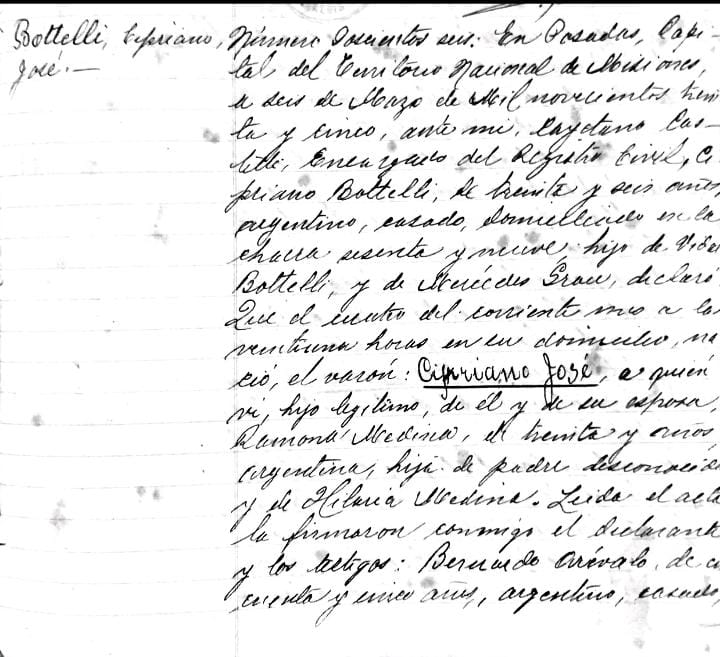 Bottelli, Cipriano,
José.—
Número doscientos seis. En Posadas, Capi-
tal del Territorio Nacional de Misiones,
a seis de Mazo de Mil novecientos trein
ta y cinco, ante mi, Cayetano Cas-
telli, Encargado del Registro Civil, Ci
priano Bottelli, de treinta y seis años
argentino, casado, domiciliado en la
chacra sesenta y nueve, hijo de Vidal
Bottelli, y de Mercedes Grau, declaró:
Que el cuatro del corriente mes a las
veintiuna horas en su domicilio, na
ció, el varón: Cipriano José, a quien
vi, hijo legítimo, de él y de su esposa,
Ramona Medina, de treinta y años,
argentina, hija de padre desconocido
y de Hilaria Medina. Leida el acta
la firmaron conmigo el declarante
y los testigos: Bernardo Arévalo, de
cuenta y cinco años, argentino, casado,